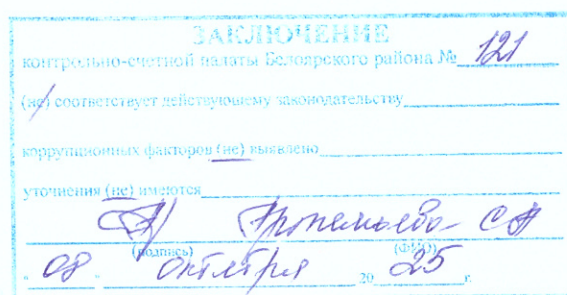 ЗАКЛЮЧЕНИЕ
контрольно-счетной палаты Белоярского района № 121
(не) соответствует действующему законодательству
коррупционных факторов (не) выявлено
уточнения (не) имеются
СА
(подпись) (ФИО)
" 08 " октября 20 25 г.